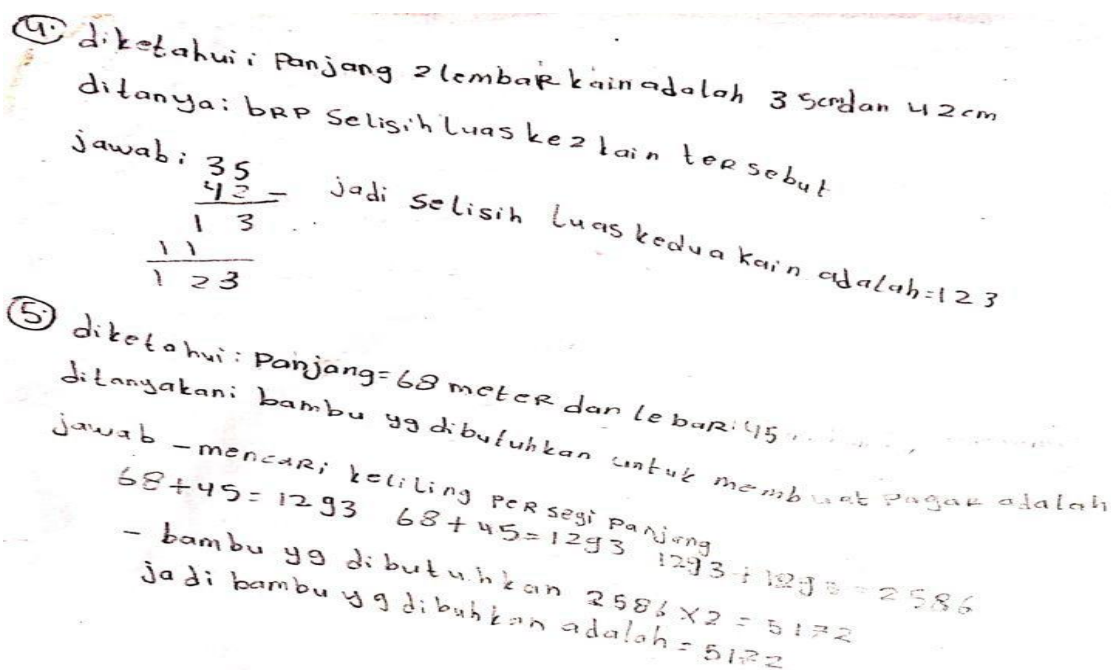 4. diketahui: Panjang 2 lembaR kain adalah 35cmdan 42cm
ditanya: bRP Selisih luas ke2 kain teR sebut
jawab: 35
42 -
1 3
11
1 23
jadi selisih luas kedua kain adalah=123
5. diketahui: Panjang=68 meteR dan lebaR:45
ditanyakan: bambu yg dibutuhkan untuk membuat PagaR adalah
jawab - mencaRi keliling PeRsegi Panjang
68+45=1293 68+45=1293 1293+1293=2586
- bambu yg dibutuhkan 2586x2=5172
jadi bambu yg dibuhkan adalah=5172